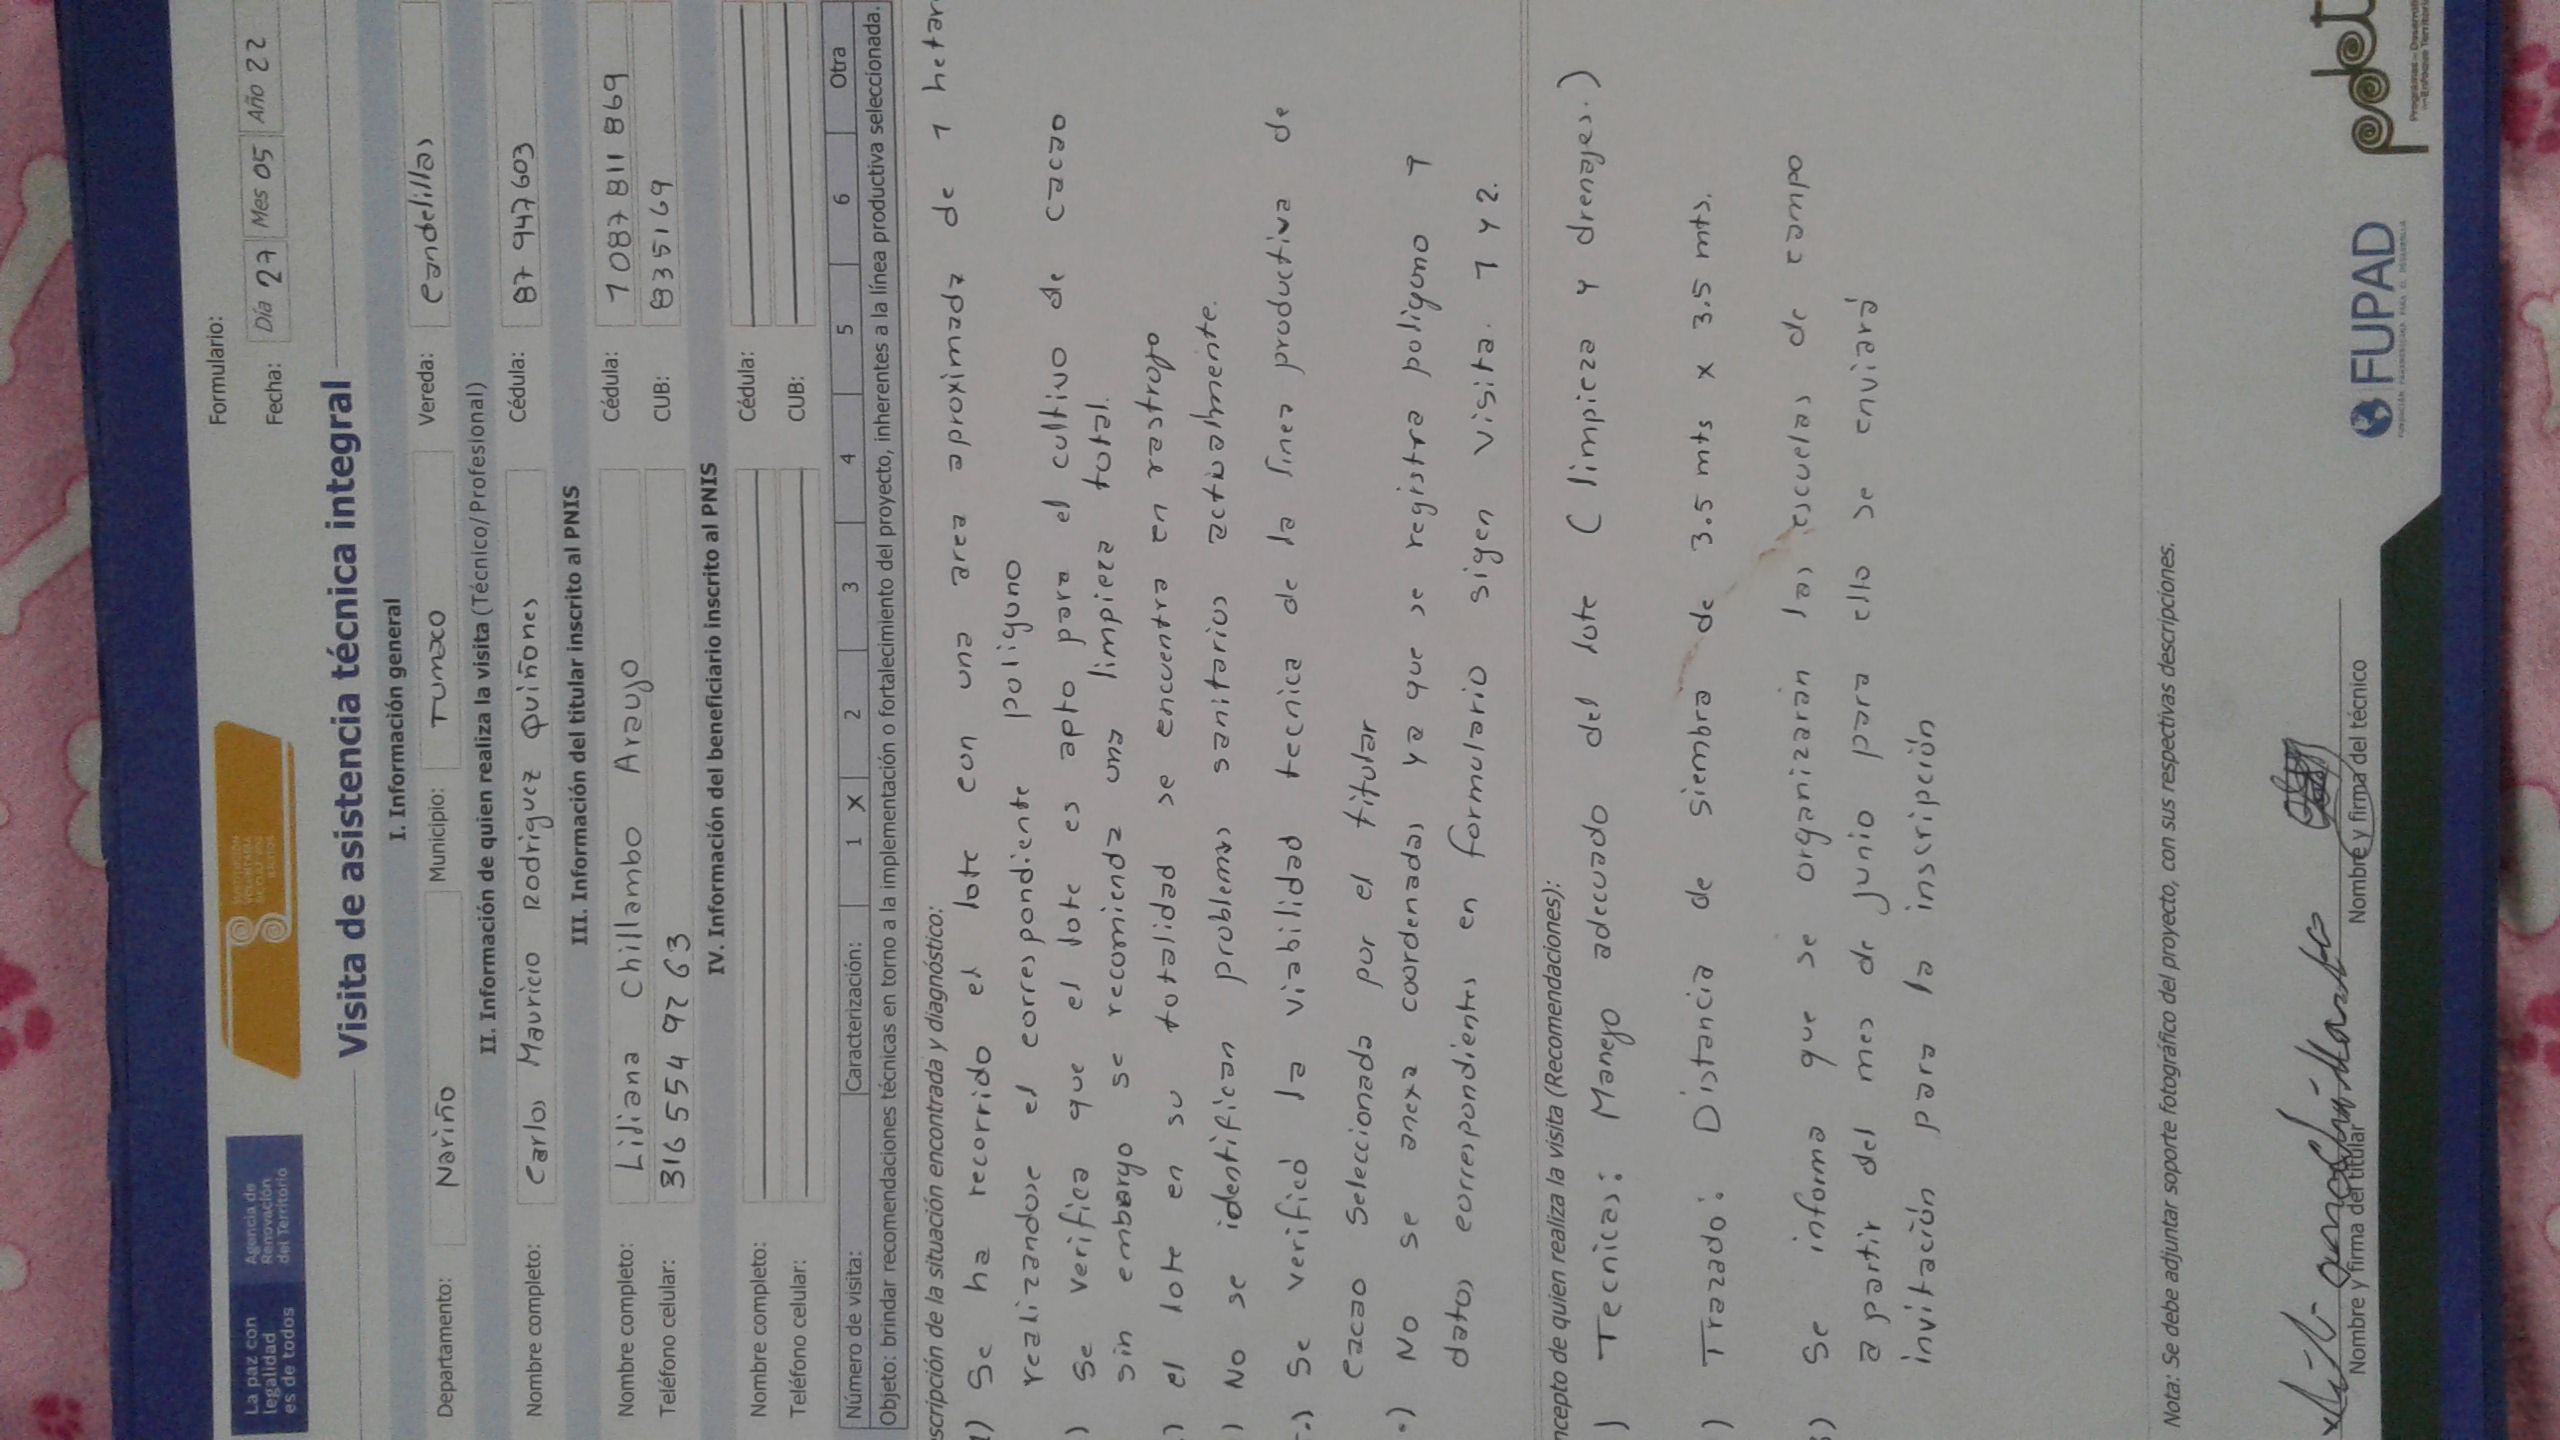 La paz con
legalidad
es de todos
Agencia de
Renovación
del Territorio
SUSTITUCIÓN
VOLUNTARIA
Formulario:
Fecha: Día 27 Mes 05 Año 22
Visita de asistencia técnica integral
I. Información general
Departamento: Nariño Municipio: Tumaco Vereda: Candelillas
II. Información de quien realiza la visita (Técnico/Profesional)
Nombre completo: Carlos Mauricio Rodriguez Quiñones Cédula: 87 947 603
III. Información del titular inscrito al PNIS
Nombre completo: Lidiana Chillambo Araujo Cédula: 1 087 811 869
Teléfono celular: 316 554 92 63 CUB: 835169
IV. Información del beneficiario inscrito al PNIS
Nombre completo: Cédula:
Teléfono celular: CUB:
Número de visita: Caracterización: 1 X 2 3 4 5 6 Otra
Objeto: brindar recomendaciones técnicas en torno a la implementación o fortalecimiento del proyecto, inherentes a la línea productiva seleccionada.
scripción de la situación encontrada y diagnóstico:
1) Se ha recorrido el lote con una area aproximada de 1 hetar
realizandose el correspondiente poliguno
) Se verifica que el lote es apto para el cultivo de cacao
sin embargo se recomienda una limpieza total.
) el lote en su totalidad se encuentra en rastrojo
) No se identifican problemas sanitarios actualmente.
) Se verificó la viabilidad tecnica de la linea productiva de
cacao seleccionada por el titular
) No se anexa coordenadas ya que se registra poliguno 1
datos correspondientes en formulario sigen visita. 1 y 2.
ncepto de quien realiza la visita (Recomendaciones):
) Tecnicas: Manejo adecuado del lote (limpieza y drenajes.)
) Trazado: Distancia de siembra de 3.5 mts x 3.5 mts.
3) Se informa que se organizarán las escuelas de campo
a partir del mes de junio para ello se enviará
invitación para la inscripción
Nota: Se debe adjuntar soporte fotográfico del proyecto, con sus respectivas descripciones.
Nombre y firma del titular
Nombre y firma del técnico
FUPAD
FUNDACIÓN PANAMERICANA PARA EL DESARROLLO
pdet
Programas de Desarrollo
con Enfoque Territorial